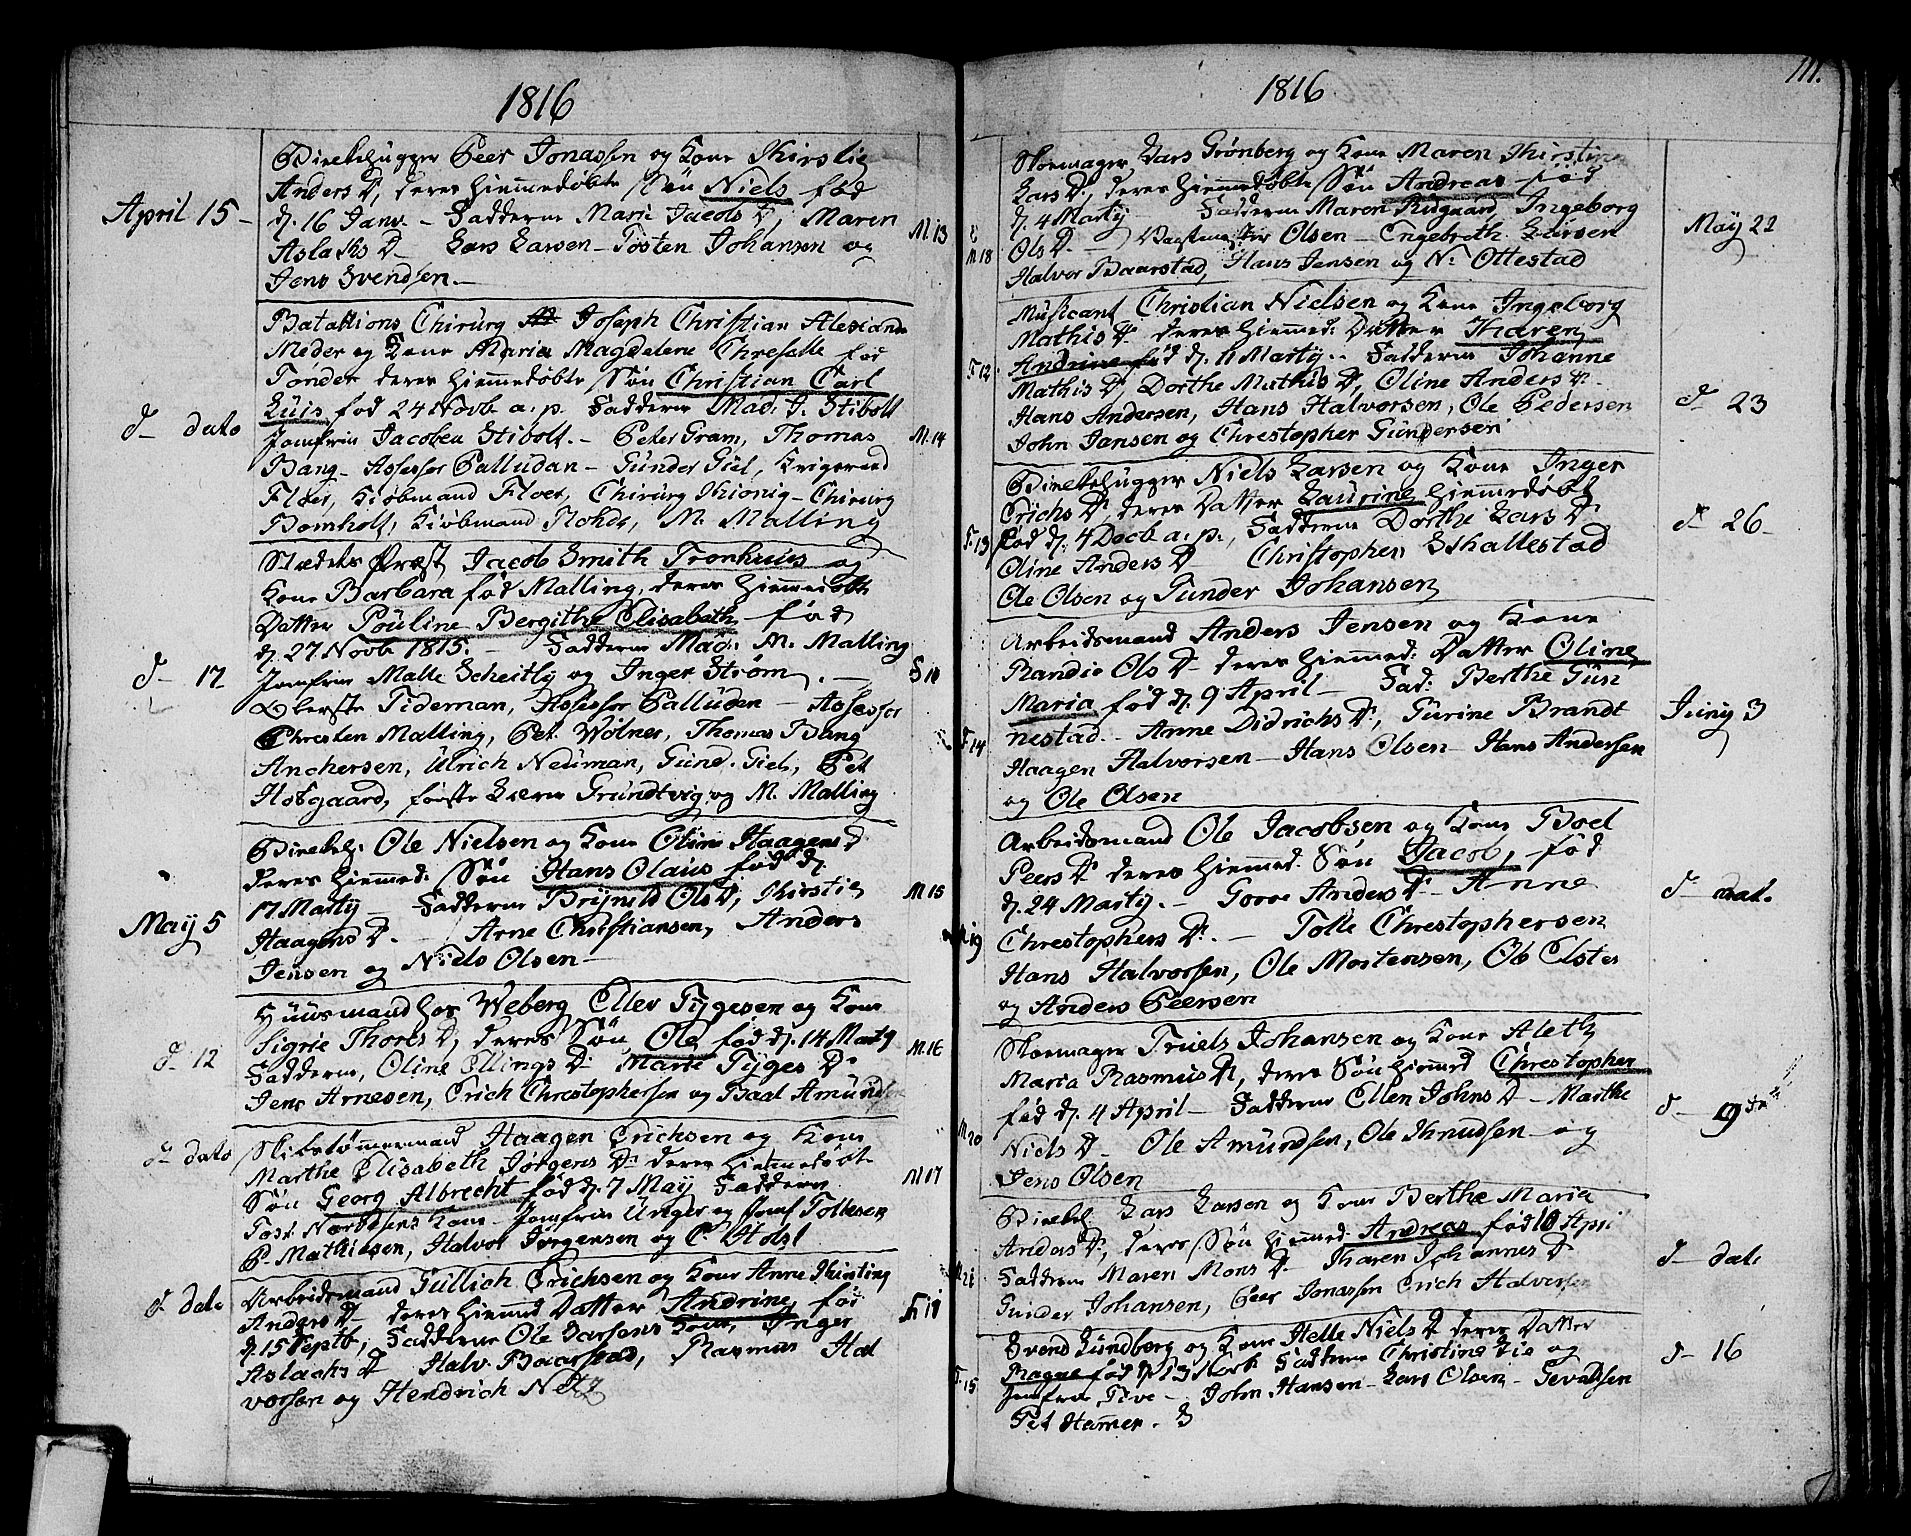 1816
April 15 -
Birkehugger Peer Jonassen og Kone Kirstie
Anders D, deres hiemmedøbte Søn Niels fød
d. 16 Janv. - Fadderne Marie Jacobs D, Maren
Aslaks D - Lars Larsen - Tosten Johansen og
Jens Svendsen. -
M 13
d - dato
Batallions Chirurg Joseph Christian Alexiande
Meder og Kone Maria Magdelene fød
Tønder deres hiemmedøbte Søn Christian Carl
Luis fød 24 Novb a. p. Fadderne Mad: J. Stibolt
Jomfru Jacobea Stibolt. - Peter Gram, Thomas
Bang - Assessor Palludan - Gunder Giel, Krigsraad
Floer, Kiøbmand Floer, Chirurg Kionig - Chirurg
Bomholt, Kiøbmand Rohde, M. Malling
M. 14
d - 17
Stedets Præst Jacob Smith Tronhuus og
Kone Barbara fød Malling, deres hiemmedøbte
Datter Pouline Bergithe Elisabeth fød
d. 27 Novb 1815. - Fadderne Mad: M. Malling
Jomfrue Malle Scheitly og Inger Strøm. -
Oberste Tideman, Assessor Palludan - Assessor
Christen Malling, Pet. Wølner, Thomas Bang
Anchersen, Ulrich Neuman, Gund. Giel, Pet
Hofgaard, første Lærer Grundtvig og M. Malling
F 10
May 5
Birkeh. Ole Nielsen og Kone Oline Haagens D
deres hiemmed: Søn Hans Olaus fød d.
17 Marty - Fadderne Brijnild Ols D, Kirstie
Haagens D. - Arne Christiansen, Anders
Jensen og Niels Olsen -
M 15
d - 12
Huusmand hos Weberg Ellev Tygesen og Kone
Sigrie Thores D, deres Søn Ole fød d. 14 Marty
Fadderne, Oline Ellings D - Marie Tyges D
Jens Arnesen, Erich Christophersen og Paal Amundsen
M 16
d - dato
Skibstømmermand Haagen Erichsen og Kone
Marthe Elisabeth Jørgens D deres hiemmedøbte
Søn Georg Albrecht fød d. 7 May Fadderne
Tost Nørdesens Kone - Jomfrue Unger og Jomf Tollesen
P. Mathiesen, Halvor Jørgensen og C. Holst
M 17
d - dato
Arbeidsmand Gullich Erichsen og Kone Anne Kirsting
Anders D, deres hiemmed Datter Andrine, fød
d. 15 Septb, Fadderne Ole Larsens Kone, Inger
Aslachs D - Halv. Baarstad, Rasmus Hal
vorsen og Hendrich Netz
F 11
1816
111.
Skomager Lars Grønberg og Kone Maren Kirstine
Lars D, deres hiemmedøbte Søn Andreas fød
d. 4 Marty - Fadderne Maren Rugaard, Ingeborg
Ols D - Vagtmester Olsen - Engebreth Larsen
Halvor Baarstad, Hans Jensen og N: Ottestad
M 18
May 21
Musicant Christian Nielsen og Kone Ingeborg
Mathis D deres hiemmed: Datter Karen
Andrine fød d. 11 Marty - Fadderne Johanne
Mathis D, Dorthe Mathis D, Oline Anders D -
Hans Andersen, Hans Halvorsen, Ole Pedersen
John Jansen og Christopher Gundersen
F 12
d - 23
Birkehugger Niels Larsen og Kone Inger
Erichs D, deres Datter Laurine hiemmedøbt
fød d. 4 Decb a. p., Fadderne Dorthe Lars D
Oline Anders D - Christopher Schallestad
Ole Olsen og Gunder Johansen
F. 13
d - 26 -
Arbeidsmand Anders Jensen og Kone
Randie Ols D - deres hiemmed: Datter Oline
Maria fød d. 9 April - Fad: Berthe Gun
nestad - Anne Didrichs D, Gurine Brandt
Haagen Halvorsen - Hans Olsen - Hans Andersen
og Ole Olsen
F 14
Juny 3
Arbeidsmand Ole Jacobsen og Kone Boel
Peers D deres hiemmed. Søn Jacob, fød
d. 24 Marty. - Gorve Anders D - Anne
Christophers D. - Tolle Christophersen
Hans Halvorsen, Ole Mortensen, Ole Elster
og Anders Peersen
M 19
d - dat.
Skomager Truels Johansen og Kone Aleth
Maria Rasmus D, deres Søn hiemmed Christopher
fød d. 4 April - Fadderne Ellen Johns D - Marthe
Niels D - Ole Amundsen, Ole Knudsen - og
Jens Olsen
M 20
d - 9
Birkeh. Lars Larsen og Kone Berthe Maria
Anders D, deres Søn hiemmed. Andreas fød 10 April
Fadderne Maren Mons D - Karen Johannes D
Gunder Johansen, Peer Jonassen Erich Halversen
M 21
d - dato
Svend Lundberg og Kone Helle Niels D deres Datter
Ragne fød d. 13 Mart. Fadderne Christine Lie og
Jomfrue Tive - John Hansen - Lars Olsen - Sevaldsen
Pet Hammer.
F. 15
d - 16